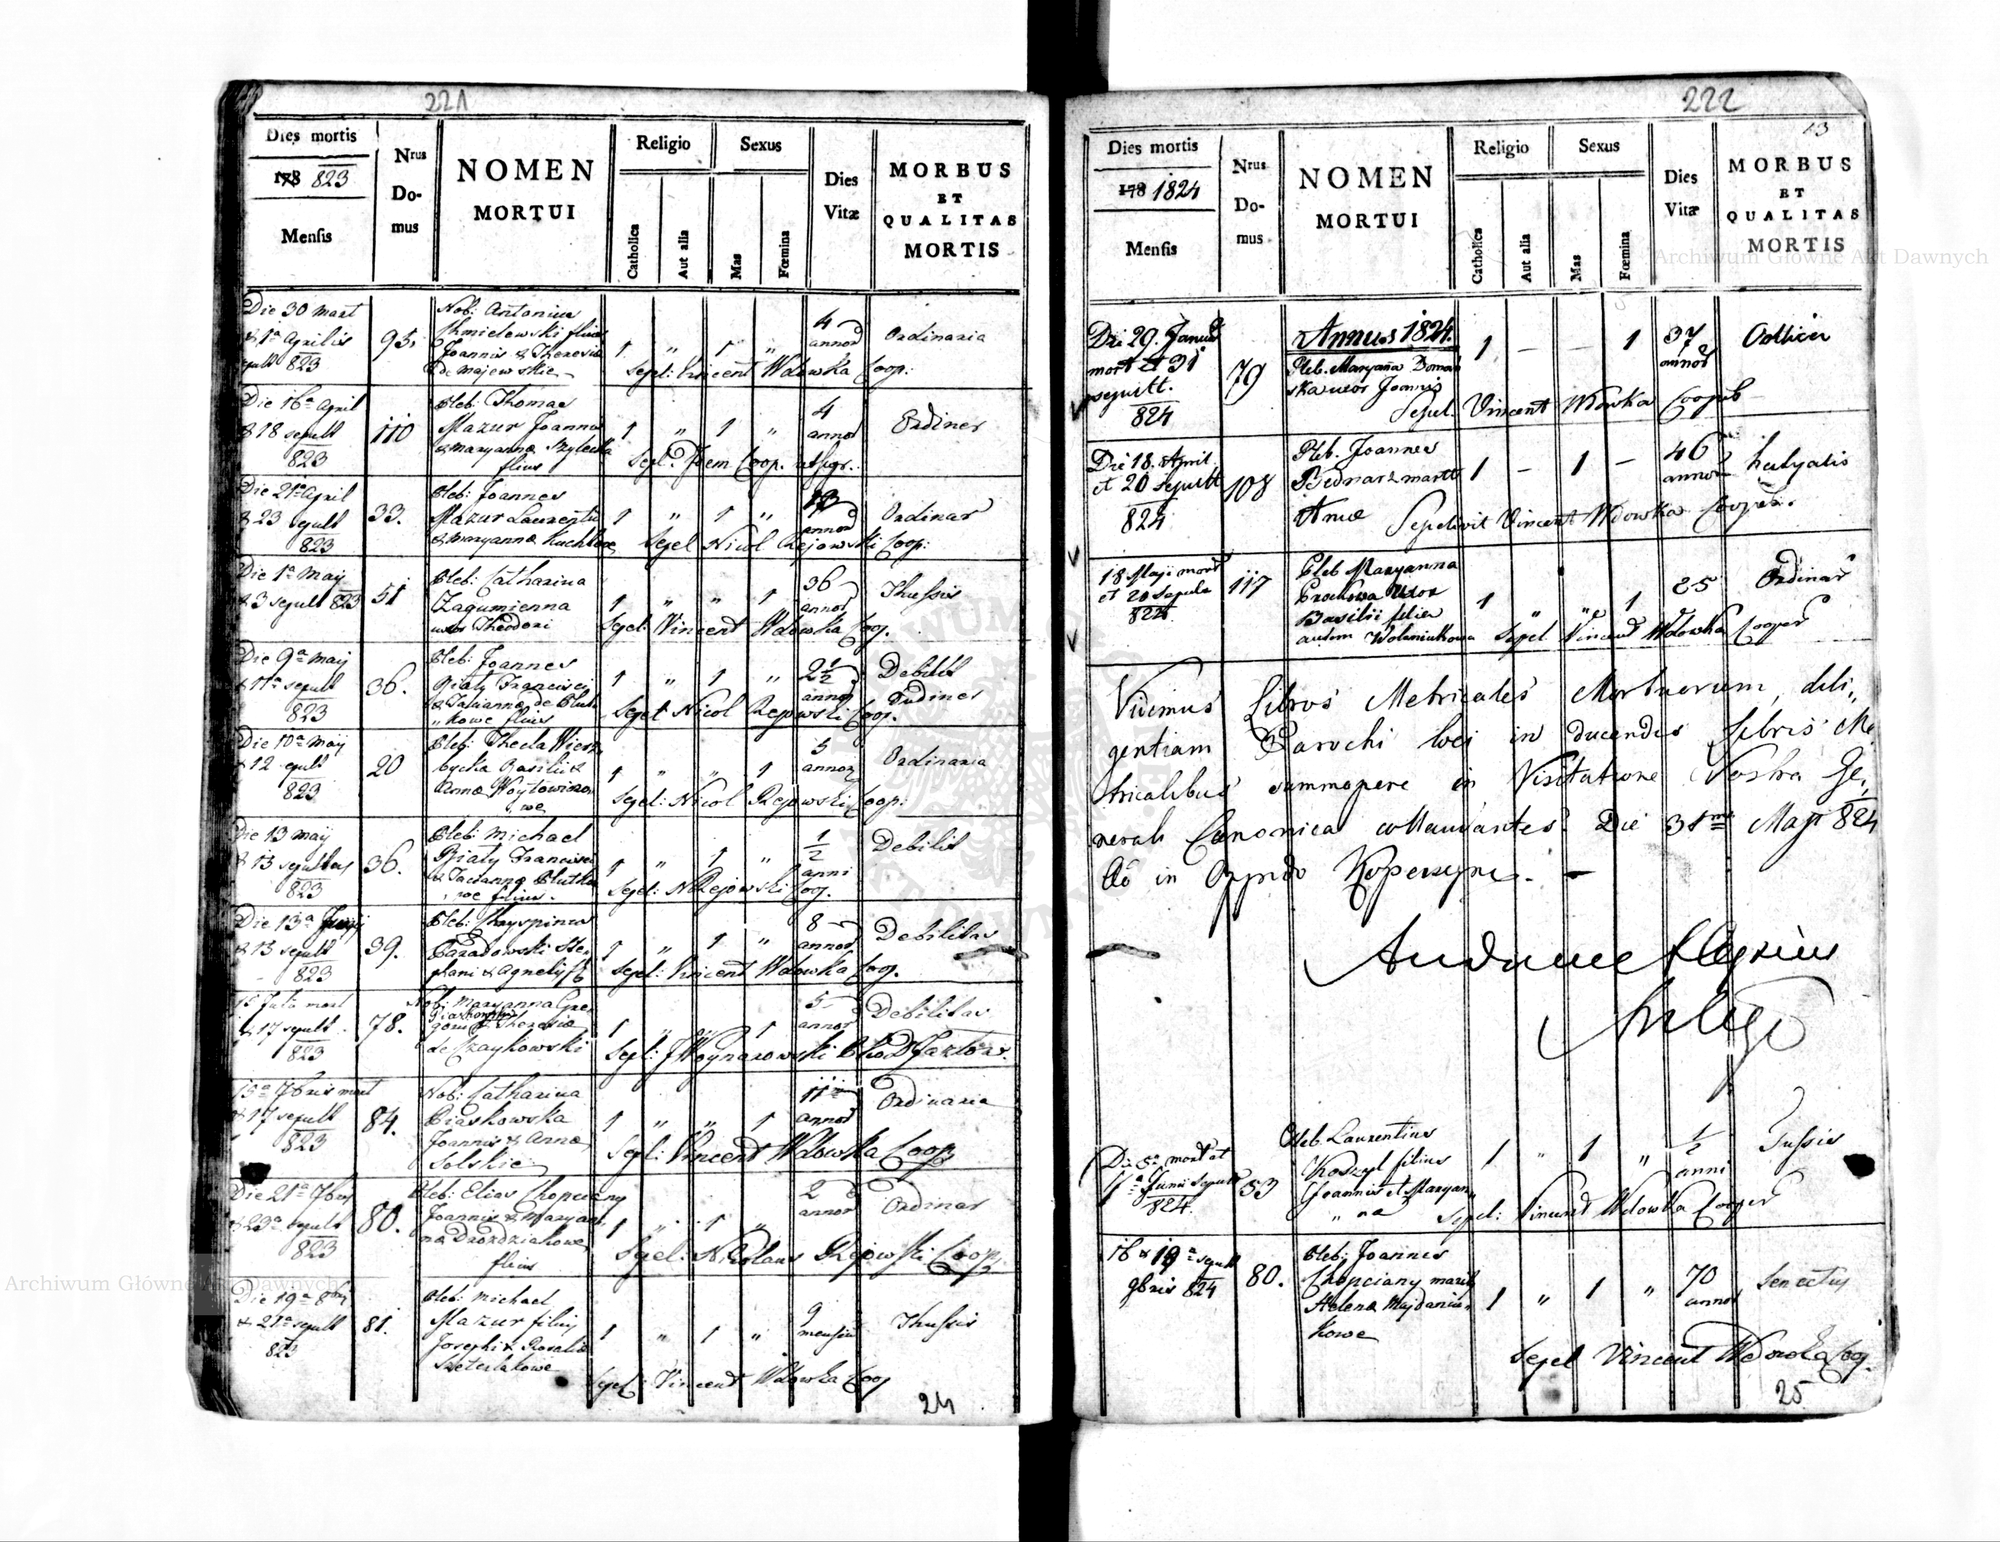 221
Dies mortis
178 823
Mensis
Nrus
Do-
mus
NOMEN
MORTUI
Religio
Catholica
Aut alia
Sexus
Mas
Fœmina
Dies
Vitæ
MORBUS
ET
QUALITAS
MORTIS
Die 30 mart
& 1a Aprilis
sepult 823
95.
Nob: Antonius
Chmielowski filius
Joannis & Theresia
de Majewskie
1 " 1 "
4
annor
Ordinaria
Sepel: Vincent Wdowka Coop:
Die 16a April
& 18 sepult
823
110
Pleb: Thomas
Mazur Joannis
& Maryanna
filius
1 " 1 "
4
annor
Ordiner
Sepel: Idem Coop.
Die 21a April
& 23 sepult
823
33.
Pleb: Joannes
Mazur Laurentii
& Maryanna
1 " 1 "
annor
Ordinar
Sepel Nicol Rejowski Coop:
Die 1a May
& 3 sepult 823
51
Pleb: Catharina
Zagumienna
uxor Theodori
1 " " 1
36
annor
Thussis
Sepel: Vincent Wdowka Coop.
Die 9a May
& 11a sepult
823
36.
Pleb: Joannes
Biaty Francisci
& Tatianna de Blut
" kowe filius
1 " 1 "
2 1/2
annor
Debilit
Ordiner
Sepel Nicol Rejowski Coop.
Die 10a May
& 12 sepult
823
20
Pleb: Thecla Wierz
bycka Basilii &
Anna Woytowiczo
we
1 " " 1
5
annor
Ordinaria
Sepel: Nicol Rejowski Coop:
Die 13 May
& 15 sepultus
823
36.
Pleb: Michael
Biaty Francisci
& Tacianna Blutko
we filius.
1 " 1 "
1/2
anni
Debilit
Sepel: N Rejowski Coop.
Die 13a Junij
& 15 sepult
823
39.
Pleb: Chryspinus
Paradowski Ste
phani & Agnetis
1 " 1 "
8
annor
Debilitas
Sepel: Vincent Wdowka Coop.
15 Julii mort
& 17 sepult
823
78.
Nob: Maryanna Gre
gorii & Theresia
de Czaykowski
1 " " 1
5
annor
Debilitas
Sepel: J Woynarowski
15a 7bris mort
& 17 sepult
823
84.
Nob: Catharina
Piaskowska
Joannis & Anna
Solskie
1 " " 1
11
annor
Ordinaria
Sepel: Vincent Wdowka Coop
Die 21a 7bris
& 23a sepult
823
80.
Pleb: Elias Chopciany
Joannis & Maryan
na Drozdziakowe
filius
1 " 1 "
2
annor
Ordiner
Sepel: Nikolaus Rejowski Coop.
Die 19a 8bris
& 21a sepult
823
81.
Pleb: Michael
Mazur filius
Josephi & Rosalia
1 " 1 "
9
mensium
Thussis
Sepel: Vincent Wdowka Coop
24
222
13
Dies mortis
178 1824
Mensis
Nrus
Do-
mus
NOMEN
MORTUI
Religio
Catholica
Aut alia
Sexus
Mas
Fœmina
Dies
Vitæ
MORBUS
ET
QUALITAS
MORTIS
Annus 1824.
Die 29. Januar
mort et 31
sepult.
824
79
Pleb. Maryanna Doman
ska uxor Joannis
1 — — 1
37
annor
Sepel. Vincent Wdowka Cooper
Die 18. April
et 20 sepult
824
108
Pleb. Joannes
Bednarz
Anna
1 — 1 —
46
annor
Sepelivit Vincent Wdowka Cooper.
18 Maji mort
et 20 sepult
824
117
Pleb Maryanna
uxor
Basilii filia
autem Wolaniukowa
1 " " 1
25
Ordinar
Sepel Vincent Wdowka Cooper
Vidimus Libros Metricales Mortuorum, dili,
gentiam Parochi loci in ducendis Libris Me
tricalibus summopere in Visitatione Nostra Ge,
nerali Canonica collaudantes. Die 31ma Maji 824
Aõ in Oppido
Die 5a mort et
Junii sepult
824.
53
Pleb. Laurentius
Koszyl filius
Joannis et Maryan
" na
1 " 1 "
1/2
anni
Tussis
Sepel: Vincent Wdowka Cooper
16 & 19a sepult
9bris 824
80.
Pleb: Joannes
Chopciany marit
Helena Majdaniu,
kowe
1 " 1 "
70
annor
Senectus
Sepel Vincent Wdowka Coop.
25
Archiwum Główne Akt Dawnych
Archiwum Główne Akt Dawnych